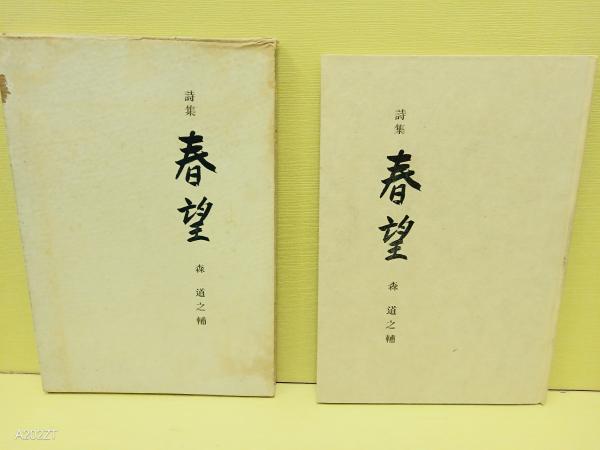 詩集
春望
森 道之輔
詩集
春望
森 道之輔
A202ZT